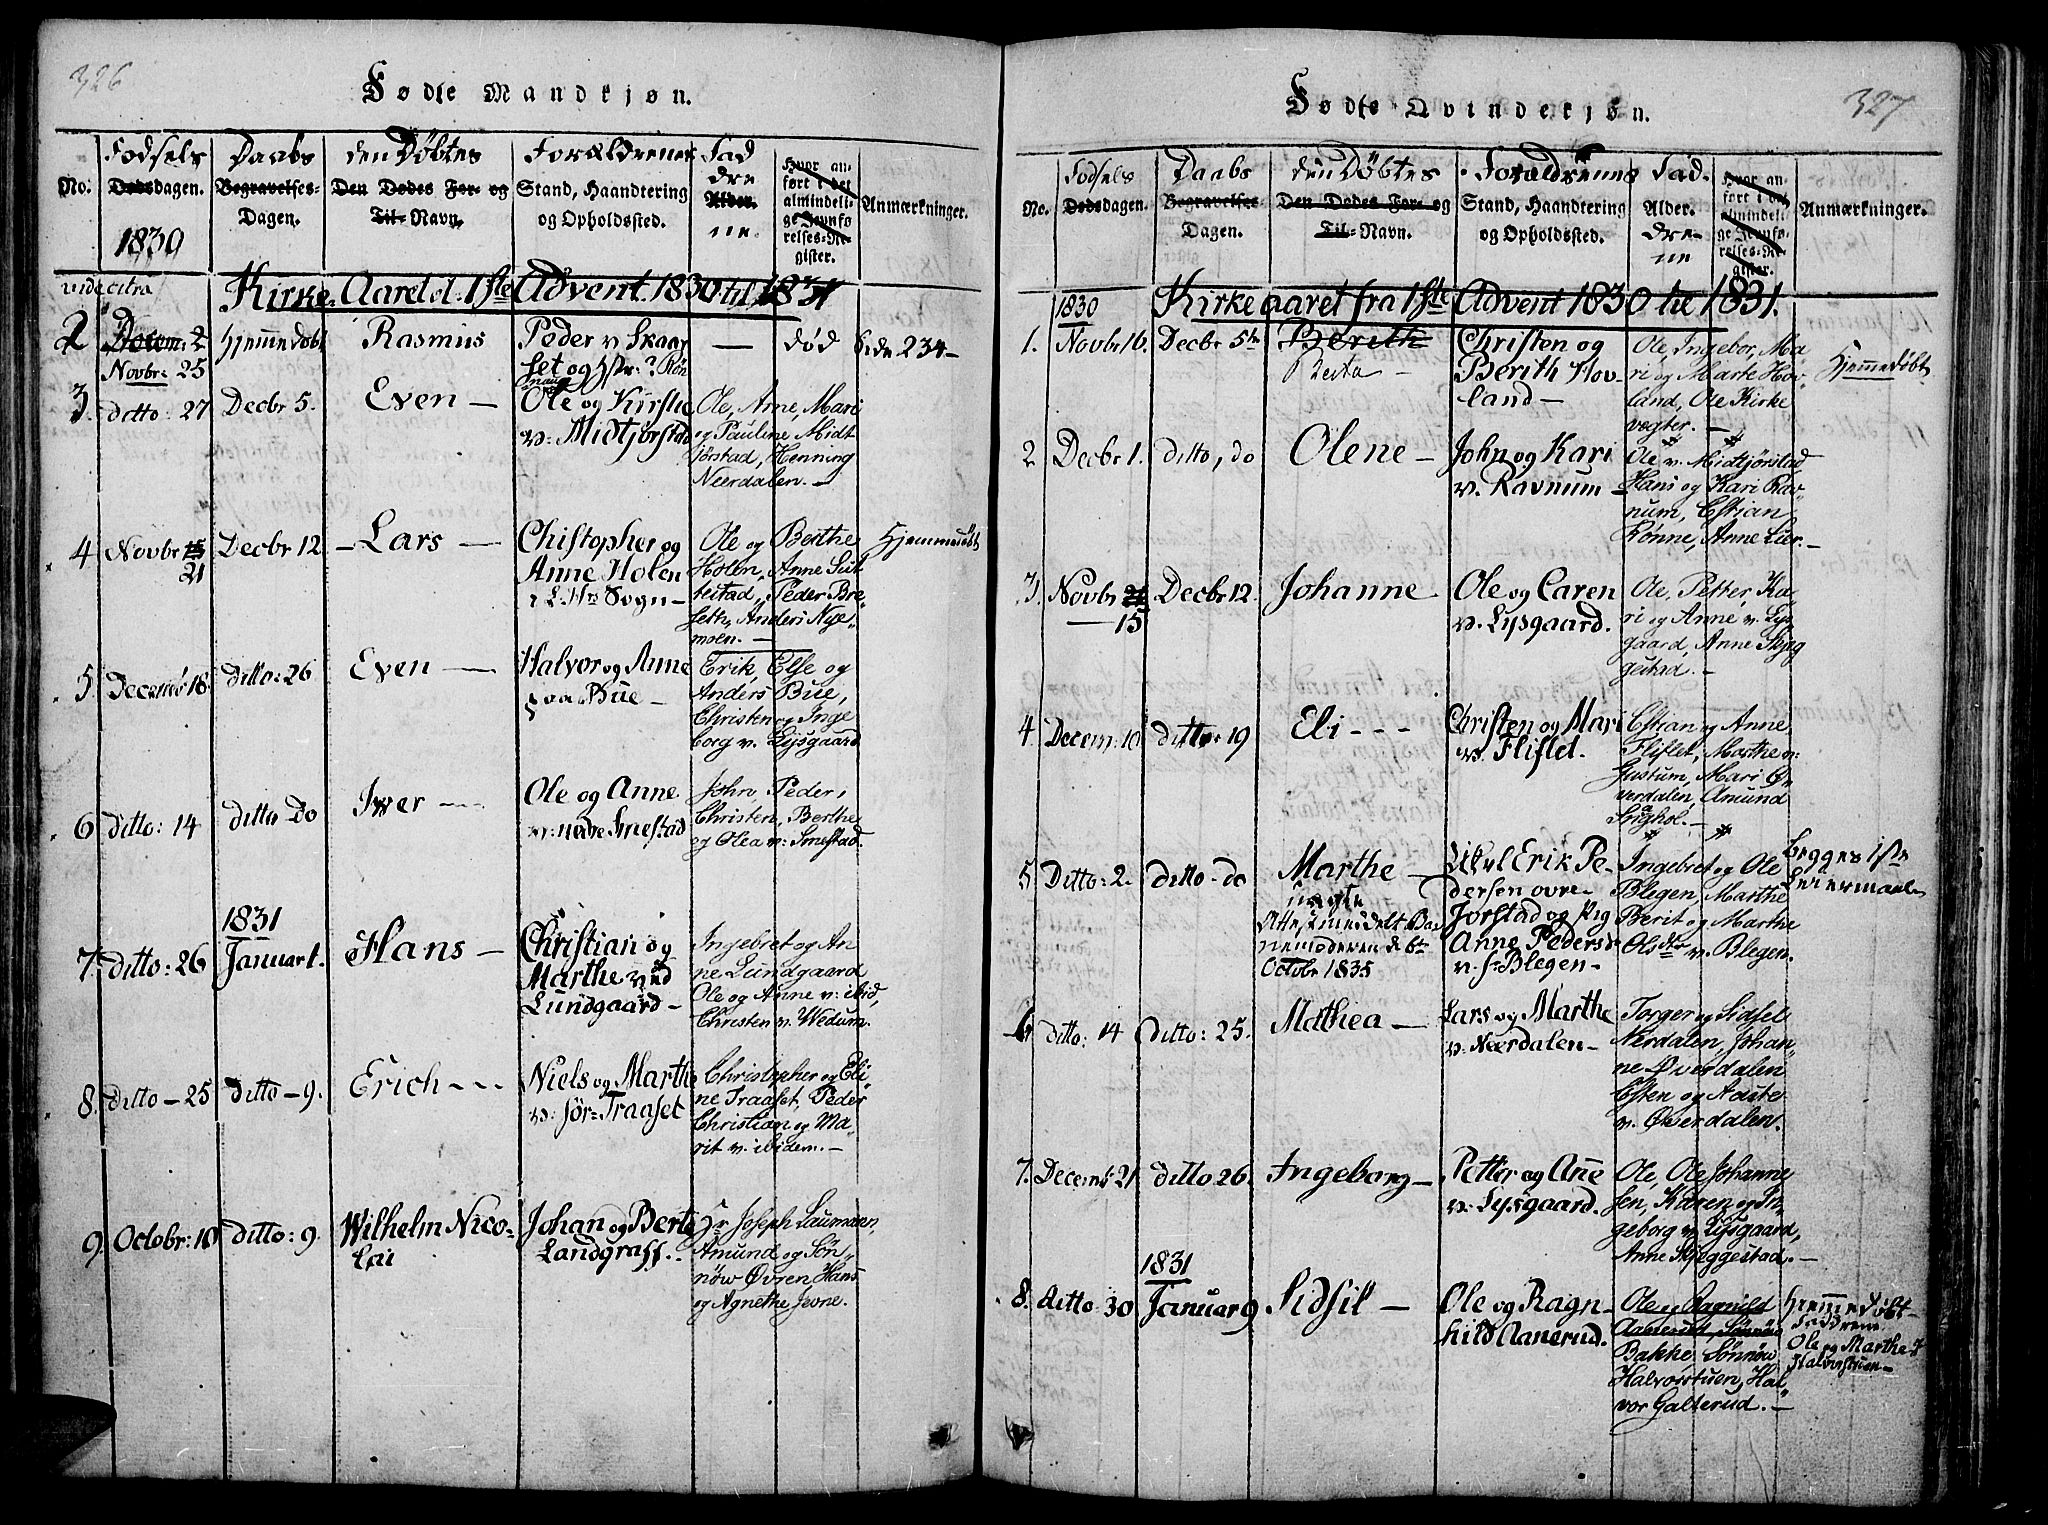 326
Fødte Mandkjøn.
No.
Fødsels
Dødsdagen.
1830
Daabs
Begravelses-
Dagen.
den Døbtes
Den Dødes For- og
Til-Navn.
Forældrenes
Stand, Haandtering
og Opholdssted.
Fad
dre
Alder.
ne.
Hvor an-
ført i det
almindeli-
ge Jevnfø-
relses-Re-
gister.
Anmærkninger.
vide citra
Kirke Aaret d. 1ste Advent 1830 til 1831
2
Decem: 2
Novbr: 25
hjemmedøbt
Rasmus
Peder v. Skaar
set og Hstr:? Røn
naug
—
død
Side 234-
3. ditto: 27
Decbr 5.
Even —
Ole og Kirstie
v: Midtjørstad
Ole, Arne, Mari
og Pauline Midt
jørstad, Henning
Neerdalen. —
4 Novbr 15
21
Decbr 12
- Lars -
Christopher og
Anne Holen
i L. Hrs Sogn -
Ole og Berthe
Holen, Anne Sut
testad, Peder Bre-
seth, Anders Nye-
moen. —
Hjemmedøbt
5. Decembr 18
ditto: 26
Even —
Halvor og Anne
paa Bue -
Erik, Else og
Anders Bue,
Christen og Inge
borg v. Lysgaard.
6 ditto: 14
ditto do
Iver ---
Ole og Anne
v: nedre Smestad
John, Peder,
Christen, Berthe
og Olea v: Smestad.
7. ditto: 26
1831
Januar 1.
Hans -
Christian og
Marthe ved
Lundgaard -
Ingebret og An
ne Lundgaard
Ole og Anne v: ibid,
Christen v. Wedum.
8. ditto - 25
ditto - 9.
Erich ---
Niels og Marthe
v: Sør=Traaset
Christopher og Eli-
ne Traaset, Peder
Christian og Ma-
rit v. ibidem. -
9. Octobr: 10
ditto: 9.
Wilhelm Nico-
lai
Johan og Berte
Landgraff. -
Hr Joseph Laumann,
Amund og Søn-
nøw Øvren, Hans
og Agnethe Jevne.
327
Fødte Qvindekjøn.
No.
Fødsels
Dødsdagen.
Daabs
Begravelses-
Dagen.
den Døbtes
Den Dødes For- og
Til-Navn.
Forældrenes
Stand, Haandtering
og Opholdssted.
Fad.
Alder.
dre-
ne
Hvor an-
ført i det
almindeli-
ge Jevnfø-
relses-Re-
gister.
Anmærkninger.
1830
Kirkeaaret fra 1ste Advent 1830 til 1831.
1. Novbr 16.
Decbr 5te
Berith
Berta -
Christen og
Berith Hov-
land -
Ole, Ingebor, Ma
ri og Marte Hov-
land, Ole Kirke
vogter. -
Hjemmedøbt
2 Decbr 1.
ditto, do
Olene -
John og Kari
v. Ravnum -
Ole v. Midtjørstad
Hans og Kari Rav-
num, Estian
Rønne, Anne Lier. -
3. Novbr 21
— 15
Decbr 12.
Johanne
Ole og Caren
v. Lysgaard.
Ole, Petter, Ka-
ri og Anne v. Lys
gaard, Anne Skjeg
gestad. -
4 Decem: 10
ditto: 19
Eli ---
Christen og Mari
v. Fliflet.
Estian og Anne
Fliflet, Marthe v:
Justum, Mari Ø-
verdalen, Amund
Sveghol. -
5 Ditto: 2.
ditto - do
Marthe -
uægte
Attest meddelt Bar
nemoderen d. 6te
Octobr 1835
Erik Pe-
dersen øvre
Jorstad og Pig
Anne Pedersdr
v. Sr Blegen -
Ingebret og Ole
Blegen, Marthe
Berit og Marthe
Olsdtr v. Blegen.
begges 1ste
Leiermaal
6 ditto: 14
ditto: 25.
Mathea -
Lars og Marthe
v. Neerdalen -
Torger og Sidsel
Nerdalen, Johan-
ne Øverdalen
Esten og Aaste
v. Øverdalen.
7. Decemb 21
ditto 26.
Ingeborg -
Petter og Ane
v. Lysgaard.
Ole, Ole Johanne
sen, Karen og In-
geborg v. Lysgaard,
Anne Skjeggestad. -
8. ditto 30
1831
Januar 9
Sidsil -
Ole og Ragn-
hild Aanerud.
Ole og Ragnild
Aanerud, Sønnøw
Bakke, Sønnøw
Halvorstuen, Hal-
vor Galterud. -
Hjemmedøbt -
Faddrene
Ole og Marthe
Halvorstuen -